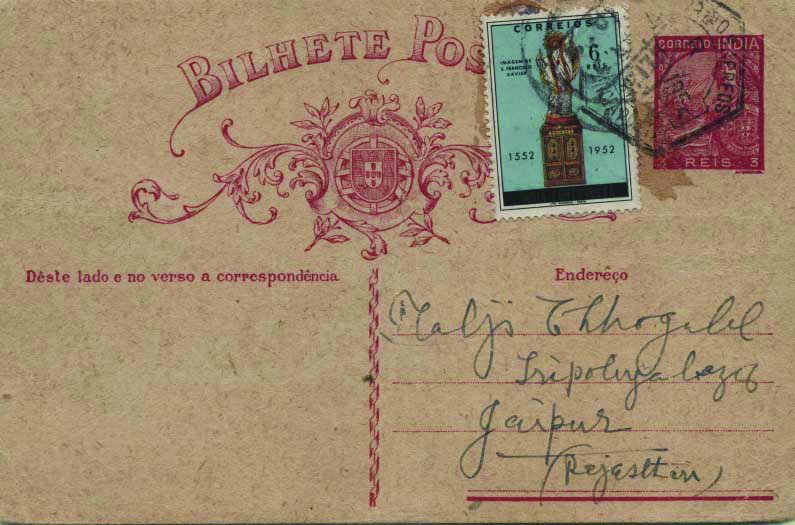 BILHETE POS
CORREIOS
6
REIS
IMAGEM DE
S. FRANCISCO
XAVIER
1552 1952
CORREIO INDIA
3 REIS 3
Dêste lado e no verso a correspondência
Enderêço
Chhogalal
Tripoliya bazar
Jaipur
(Rajasthan)